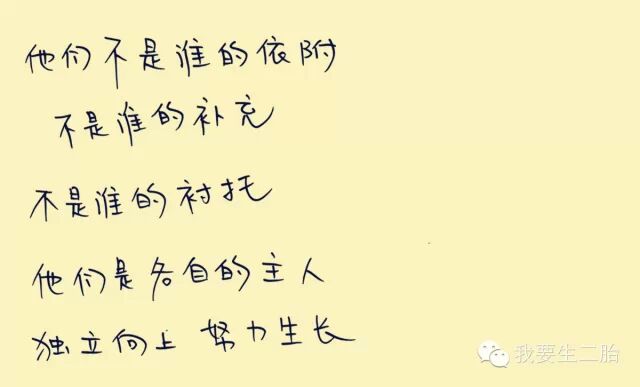 他们不是谁的依附
不是谁的补充
不是谁的衬托
他们是各自的主人
独立向上 努力生长
我要生二胎